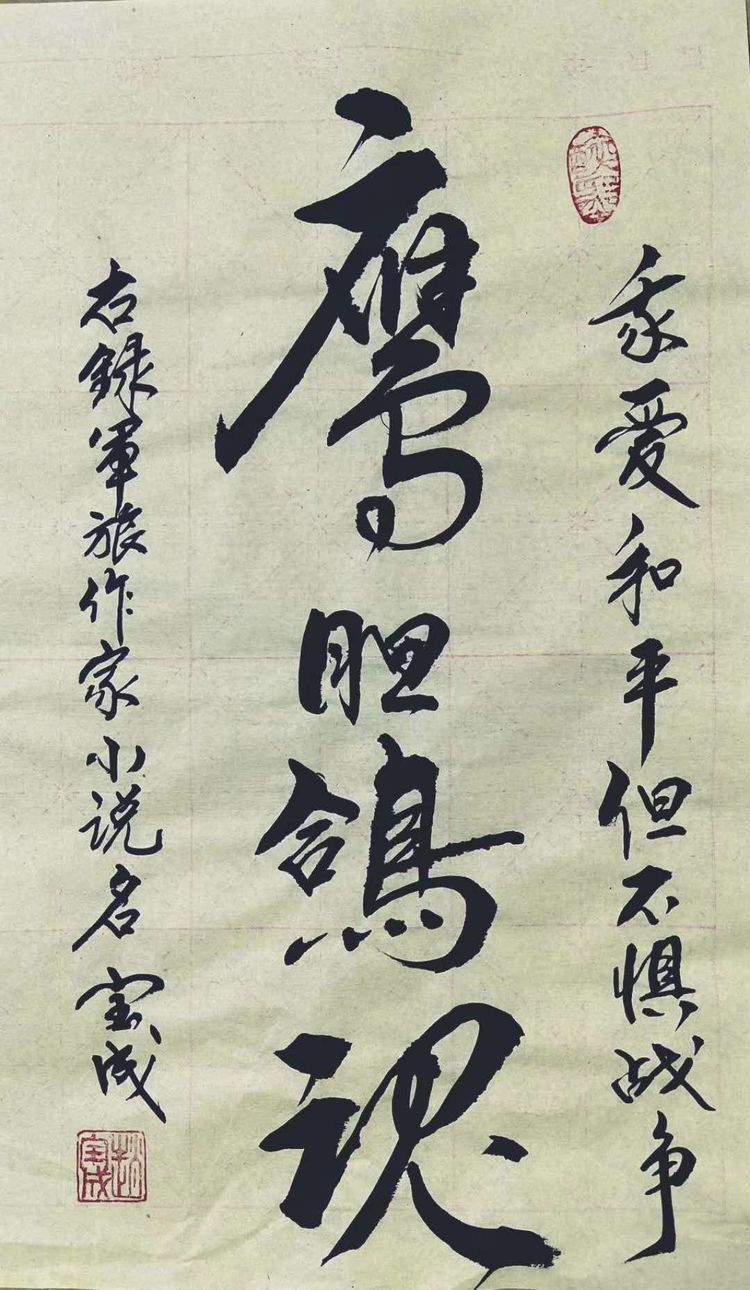 我爱和平但不惧战争
鹰胆鸽魂
右録軍旅作家小说名 宝成